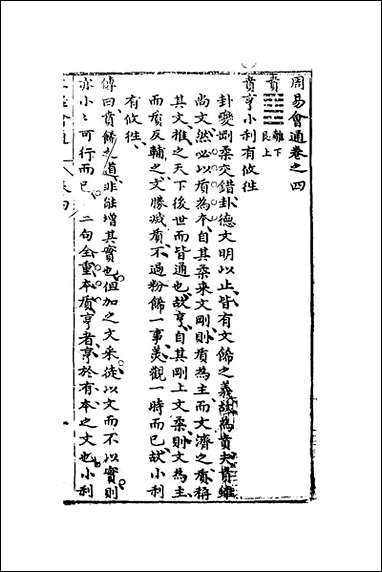 周易會通卷之四
賁 離下 艮上
賁亨小利有攸徃
卦變剛柔交錯卦德文明以止皆有文餙之義故為賁夫賁雖
尚文然必以質為本自其柔来文剛則質為主而文濟之質稱
其文推之天下後世而皆通也故亨自其剛上文柔則文為主
而質反輔之文勝滅質不過粉餙一事美觀一時而已故小利
有攸徃
傳曰賁餙之道非能增其實也但加之文采徒以文而不以實則
亦小〻可行而已 二句全重本質亨者亨於有本之文也小利